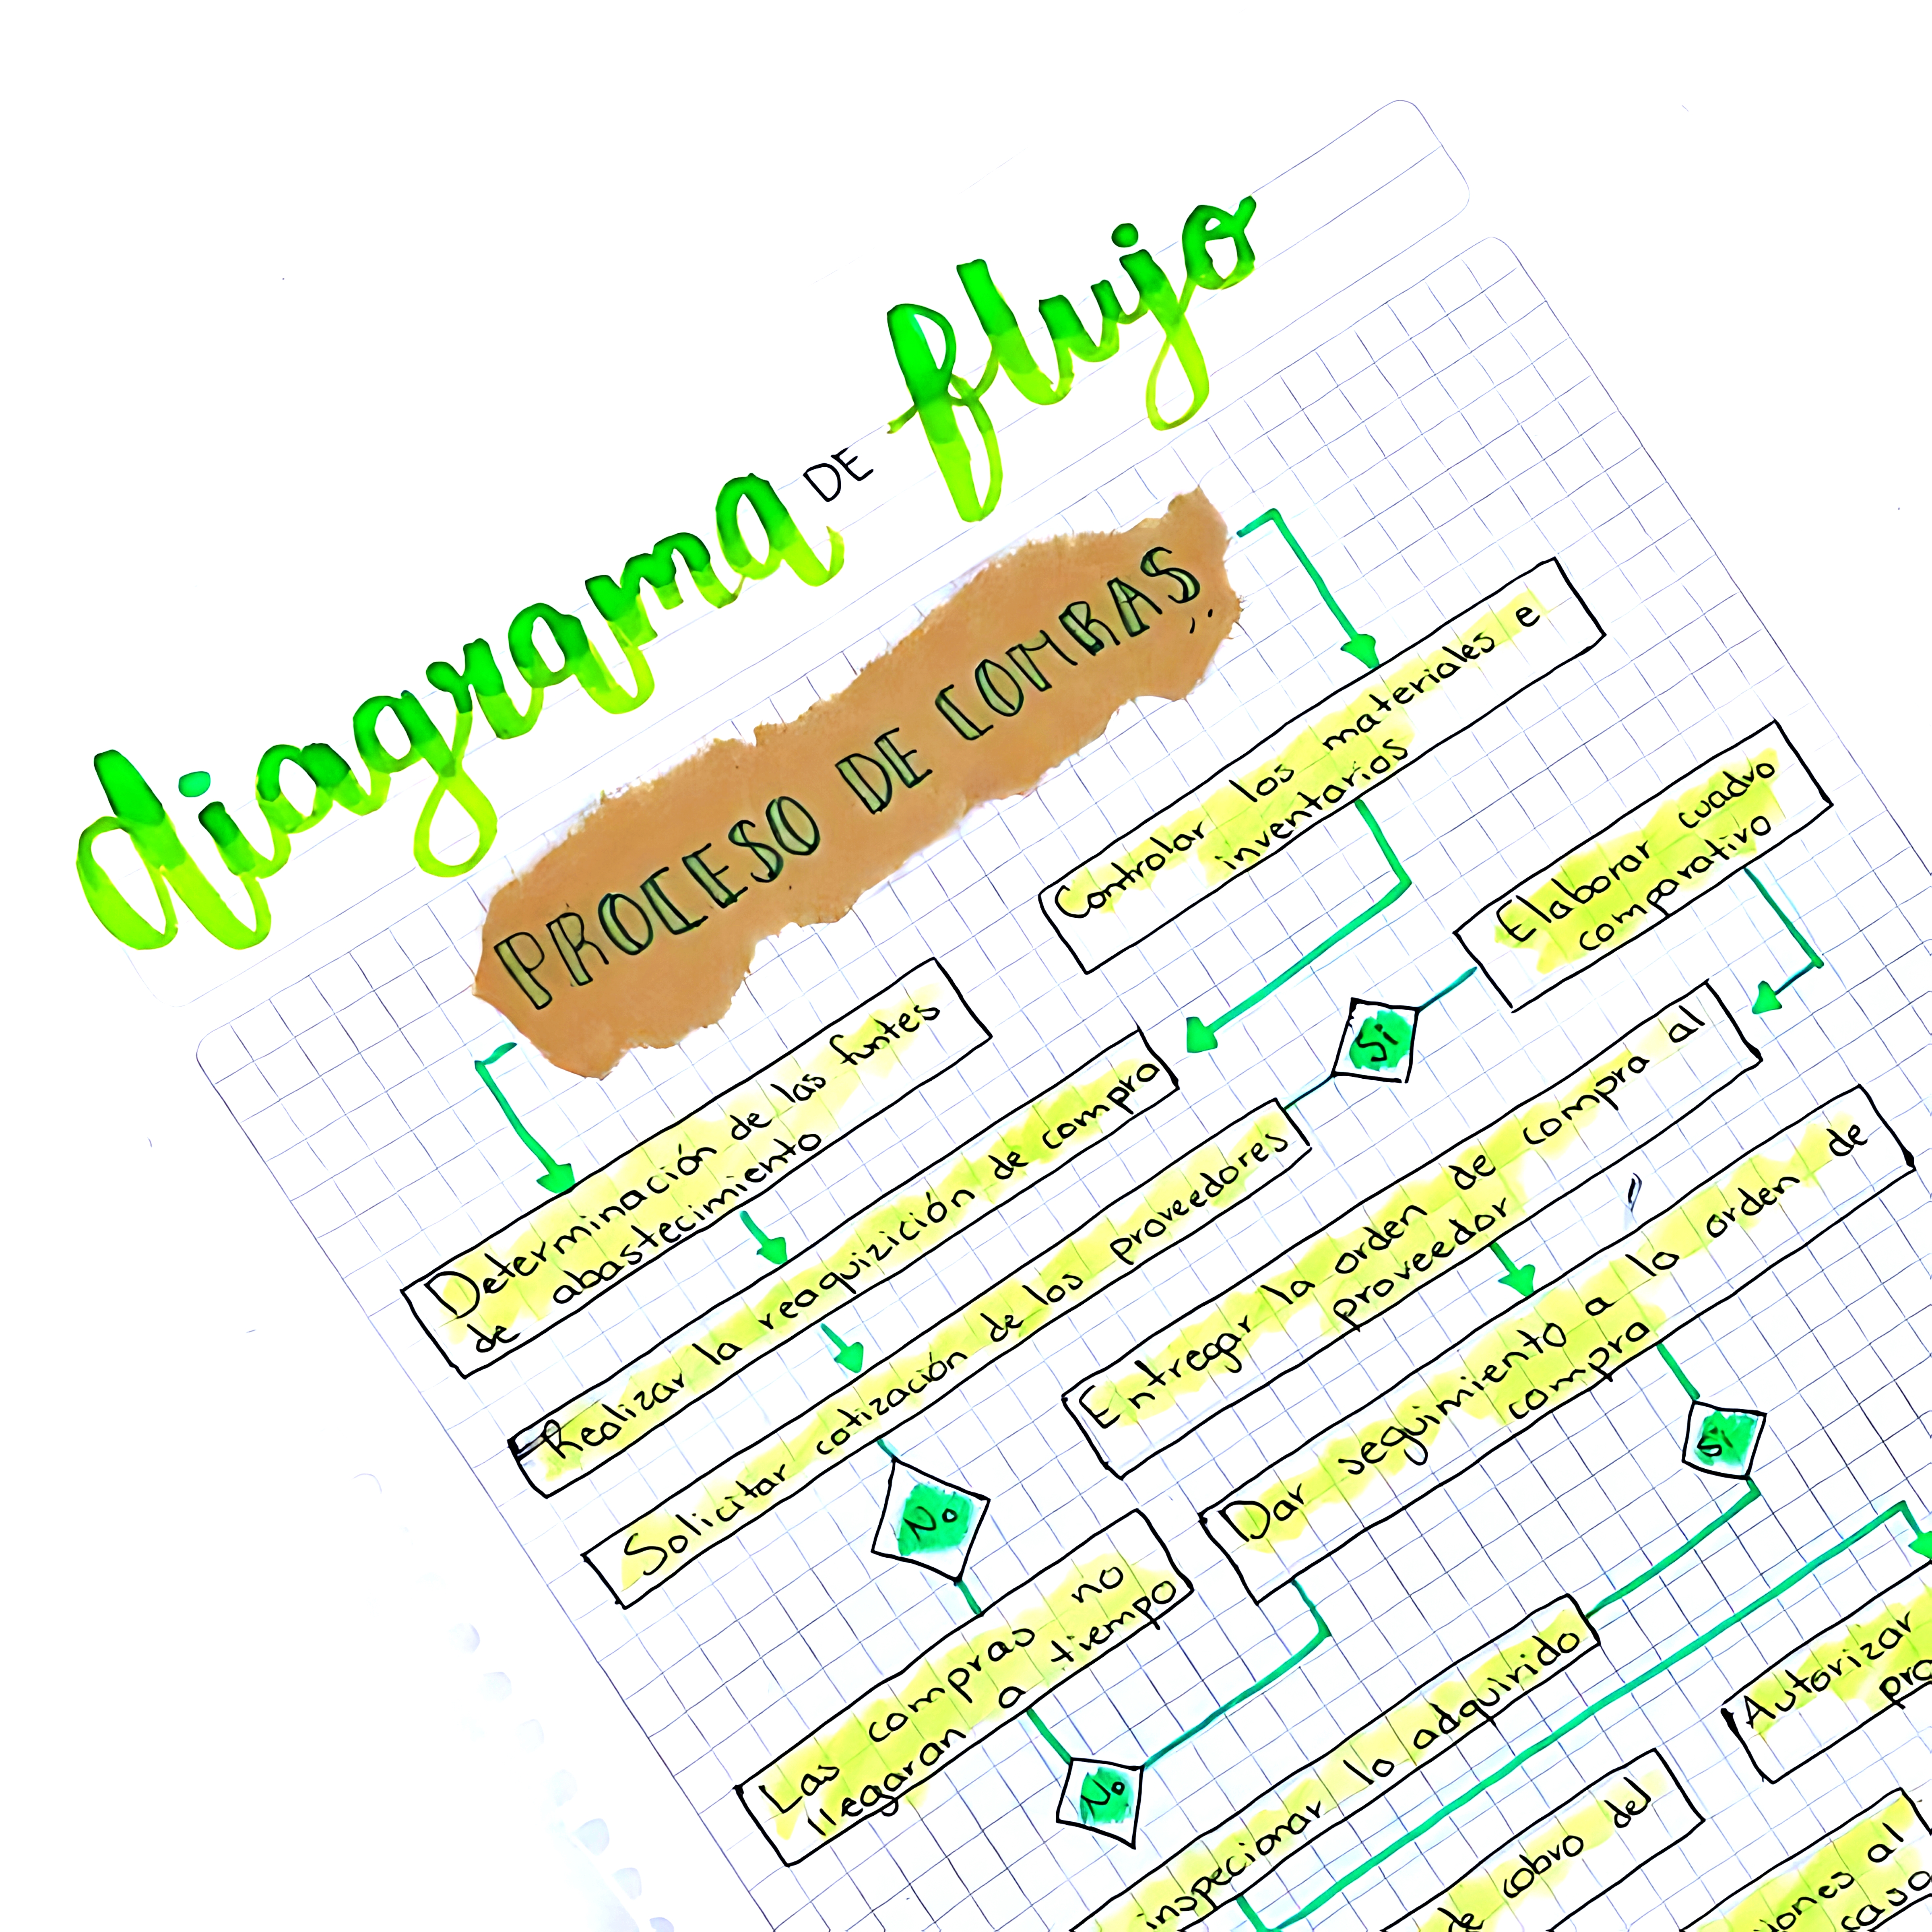 diagrama DE flujo
PROCESO DE COMBRAS
Controlar los materiales e
inventarios
Elaborar cuadro
comparativo
Determinación de las funtes
de abastecimiento
Realizar la reaquizición de compra
Si
Solicitar cotización de los proveedores
Entregar la orden de compra al
proveedor
Dar seguimiento a la orden de
compra
No
Si
Las compras no
llegaran a tiempo
No
inspecionar lo adquirido
Autorizar
de cobro del